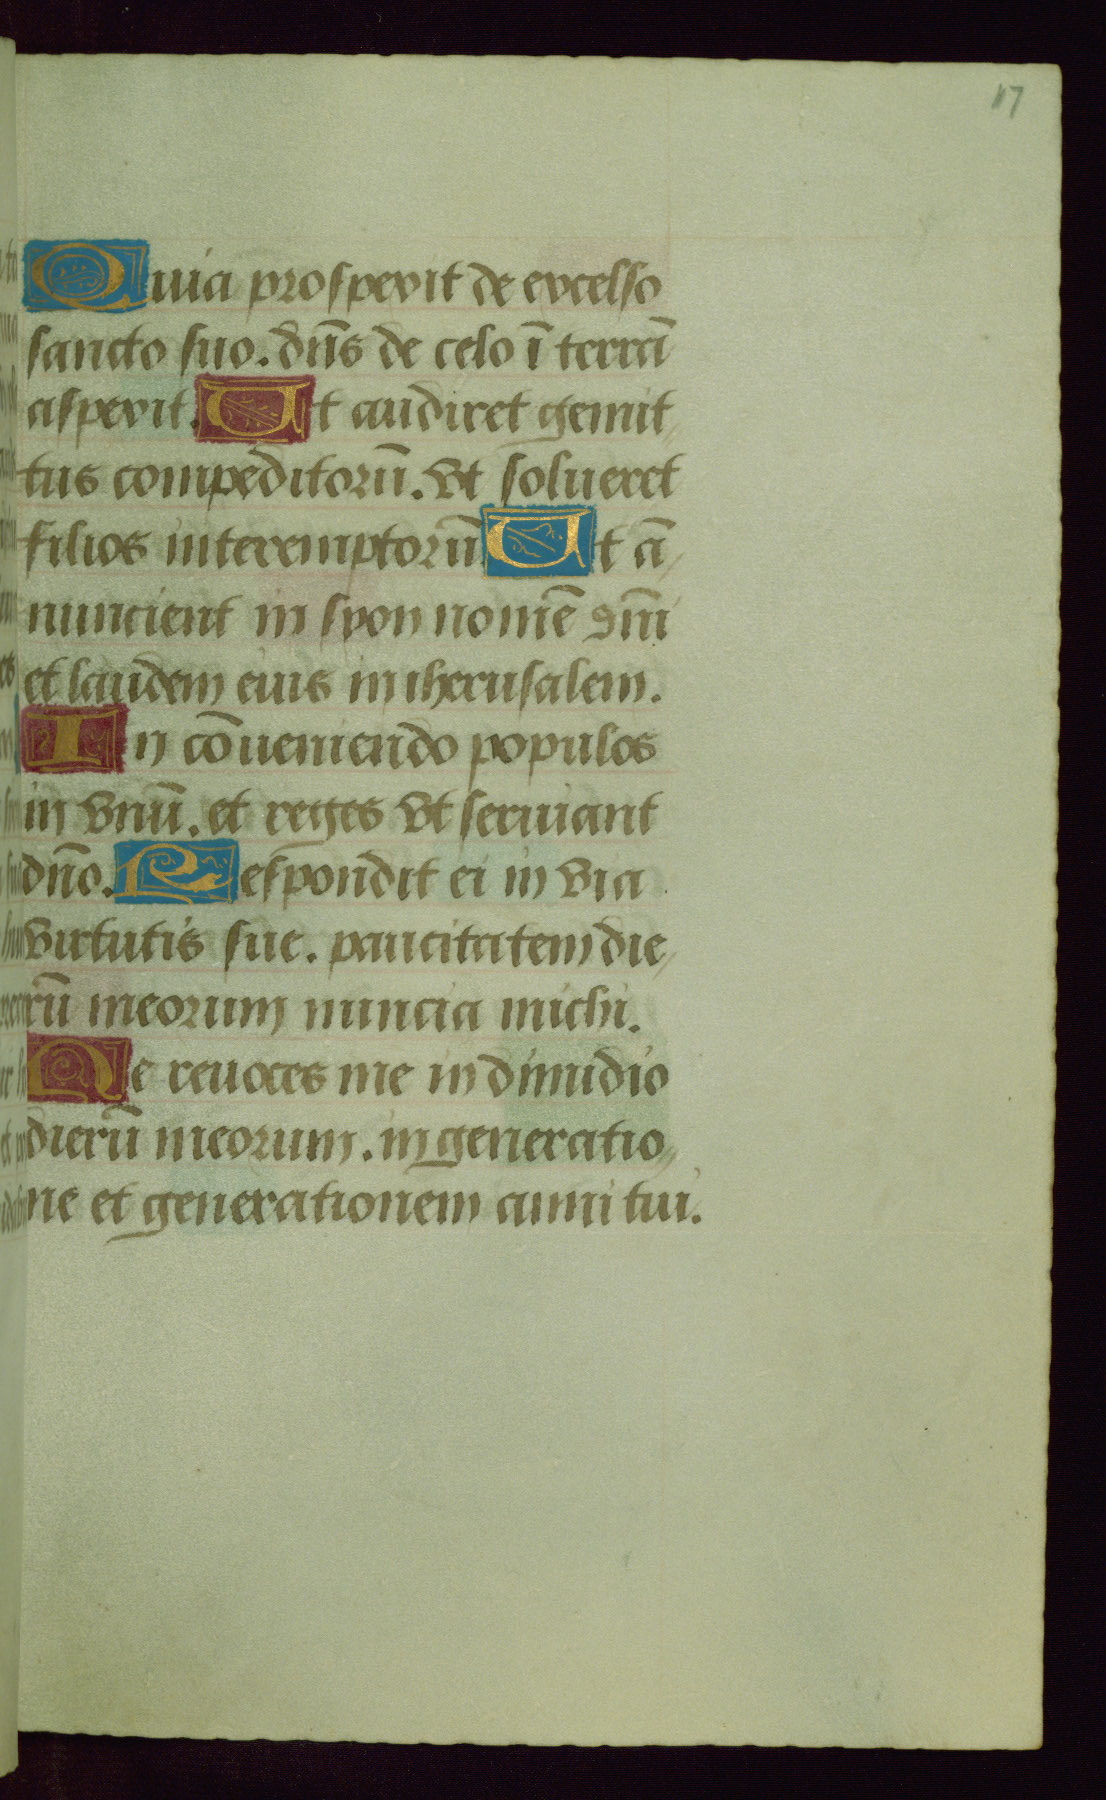 117
Quia prospexit de excelso
sancto suo. dn̄s de celo ī terrā
aspexit. Ut audiret gemit
tus compeditorū. vt solueret
filios interemptorū Ut ā
nuncient in syon nomē dn̄i
et laudem eius in iherusalem.
In cōueniendo populos
in vnū. et reges vt seruiant
dn̄o. Respondit ei in via
virtutis sue. paucitatem die
rū meorum nuncia michi.
Ne reuoces me in dimidio
dierū meorum. in generatio
ne et generationem anni tui.